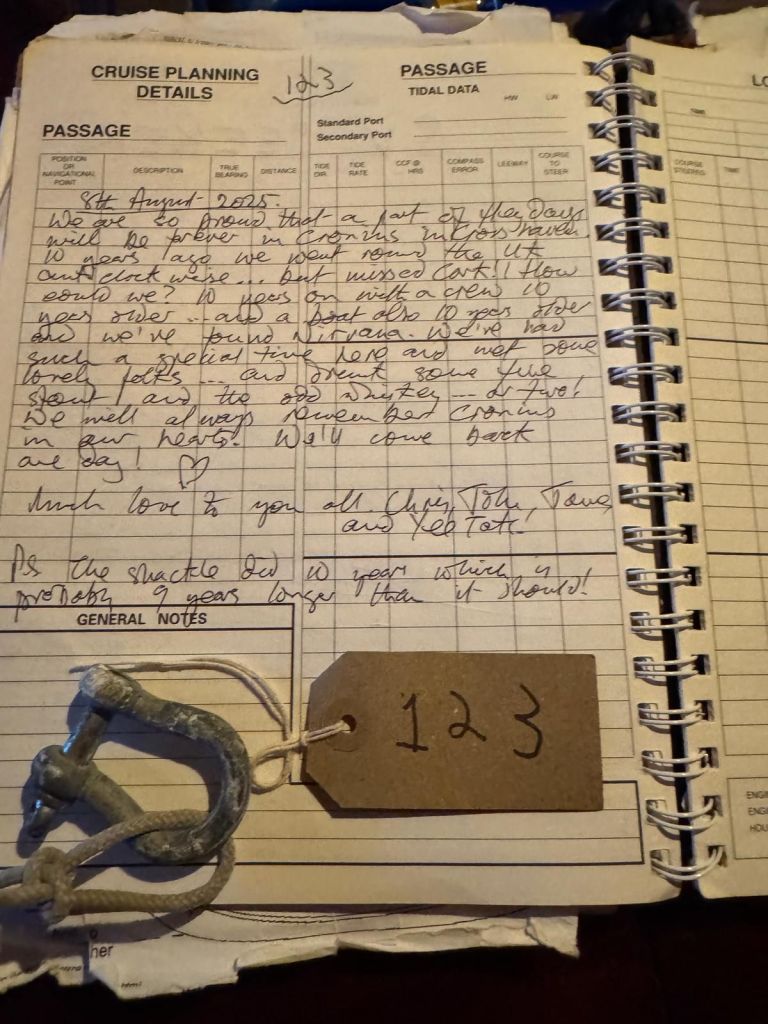 CRUISE PLANNING
DETAILS
123
PASSAGE
TIDAL DATA
HW
LW
Standard Port
Secondary Port
PASSAGE
POSITION OR NAVIGATIONAL POINT
DESCRIPTION
TRUE BEARING
DISTANCE
TIDE DIR.
TIDE RATE
HRS
COMPASS ERROR
LEEWAY
COURSE TO STEER
8th August 2025.
We are so proud that a part of
will be forever in Cronins in Crosshaven.
10 years ago we went round the UK
anticlockwise... but missed Cork!! How
could we? 10 years on with a crew 10
years older ... and a boat also 10 years older
and we've found Nirvana. We've had
such a special time here and met some
lovely folks ... and drunk some fine
stout and the odd whiskey ... or two!
We will always remember Cronins
in our hearts. We'll come back
one day! ♡
Much love to you all. Chris, John,
and
Ps The shackle did 10 years which is
probably 9 years longer than it should!
GENERAL NOTES
123
LO
TIME
COURSE
TIME
ENG
ENG
HOU
her